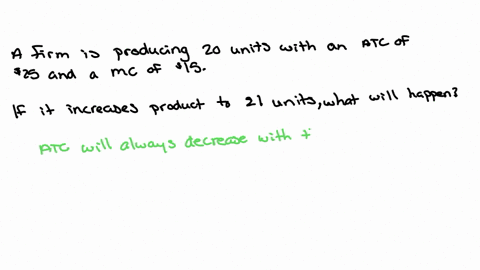 A firm is producing 20 units with an ATC of
$25 and a MC of $15.
If it increases product to 21 units, what will happen?
ATC will always decrease with